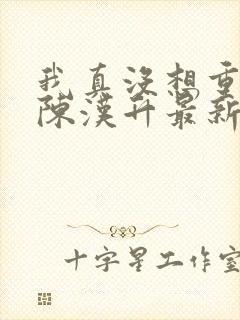 我真没想重
陈汉升最新
十字星工作室